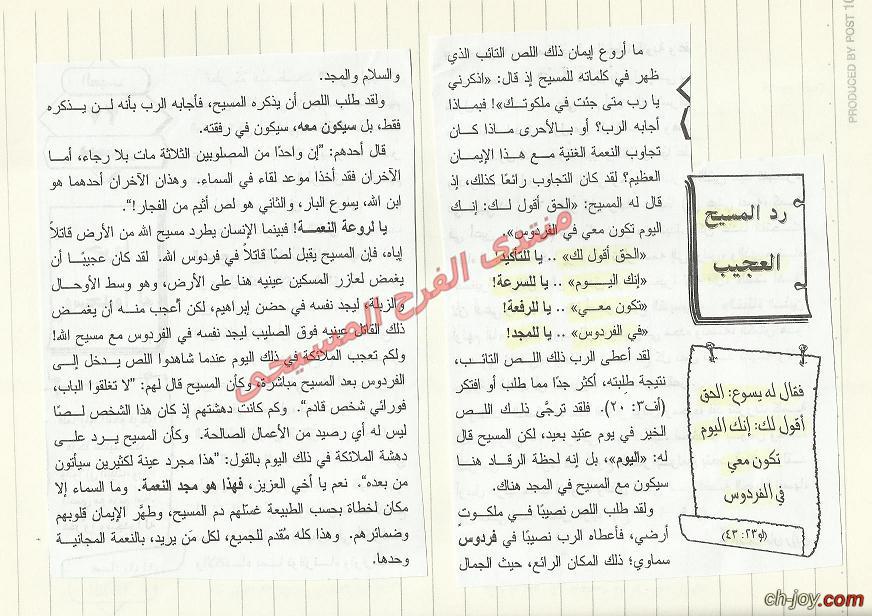 رد المسيح
العجيب
فقال له يسوع: الحق
أقول لك: إنك اليوم
تكون معي
في الفردوس
(لو٢٣: ٤٣)
ما أروع إيمان ذلك اللص التائب الذي
ظهر في كلماته للمسيح إذ قال: «اذكرني
يا رب متى جئت في ملكوتك»! فبماذا
أجابه الرب؟ أو بالأحرى ماذا كان
تجاوب النعمة الغنية مع هذا الإيمان
العظيم؟ لقد كان التجاوب رائعًا كذلك، إذ
قال له المسيح: «الحق أقول لك: إنك
اليوم تكون معي في الفردوس».
«الحق أقول لك» .. يا للتأكيد!
«إنك اليوم» .. يا للسرعة!
«تكون معي» .. يا للرفعة!
«في الفردوس» .. يا للمجد!
لقد أعطى الرب ذلك اللص التائب،
نتيجة طِلبته، أكثر جدًا مما طلب أو افتكر
(أف٣: ٢٠). فلقد ترجَّى ذلك اللص
الخير في يوم عتيد بعيد، لكن المسيح قال
له: «اليوم»، بل إنه لحظة الرقاد هنا
سيكون مع المسيح في المجد هناك.
ولقد طلب اللص نصيبًا في ملكوتٍ
أرضي، فأعطاه الرب نصيبًا في فردوسٍ
سماوي؛ ذلك المكان الرائع، حيث الجمال
والسلام والمجد.
ولقد طلب اللص أن يذكره المسيح، فأجابه الرب بأنه لن يذكره
فقط، بل سيكون معه، سيكون في رفقته.
قال أحدهم: "إن واحدًا من المصلوبين الثلاثة مات بلا رجاء، أما
الآخران فقد أخذا موعد لقاء في السماء. وهذان الآخران أحدهما هو
ابن الله، يسوع البار، والثاني هو لص أثيم من الفجار!".
يا لروعة النعمة! فبينما الإنسان يطرد مسيح الله من الأرض قاتلاً
إياه، فإن المسيح يقبل لصًا قاتلاً في فردوس الله. لقد كان عجيبًا أن
يغمض لعازر المسكين عينيه هنا على الأرض، وهو وسط الأوحال
والزبلة، ليجد نفسه في حضن إبراهيم، لكن أعجب منه أن يغمض
ذلك القاتل عينيه فوق الصليب ليجد نفسه في الفردوس مع مسيح الله!
ولكم تعجب الملائكة في ذلك اليوم عندما شاهدوا اللص يدخل إلى
الفردوس بعد المسيح مباشرة، وكأن المسيح قال لهم: "لا تغلقوا الباب،
فورائي شخص قادم". وكم كانت دهشتهم إذ كان هذا الشخص لصًا
ليس له أي رصيد من الأعمال الصالحة. وكأن المسيح يرد على
دهشة الملائكة في ذلك اليوم بالقول: "هذا مجرد عينة لكثيرين سيأتون
من بعده". نعم يا أخي العزيز، فهذا هو مجد النعمة. وما السماء إلا
مكان لخطاة بحسب الطبيعة غسَّلهم دم المسيح، وطهَّر الإيمان قلوبهم
وضمائرهم. وهذا كله مُقدم للجميع، لكل مَن يريد، بالنعمة المجانية
وحدها.
منتدى الفرح المسيحى
PRODUCED BY POST 10
ch-joy.com